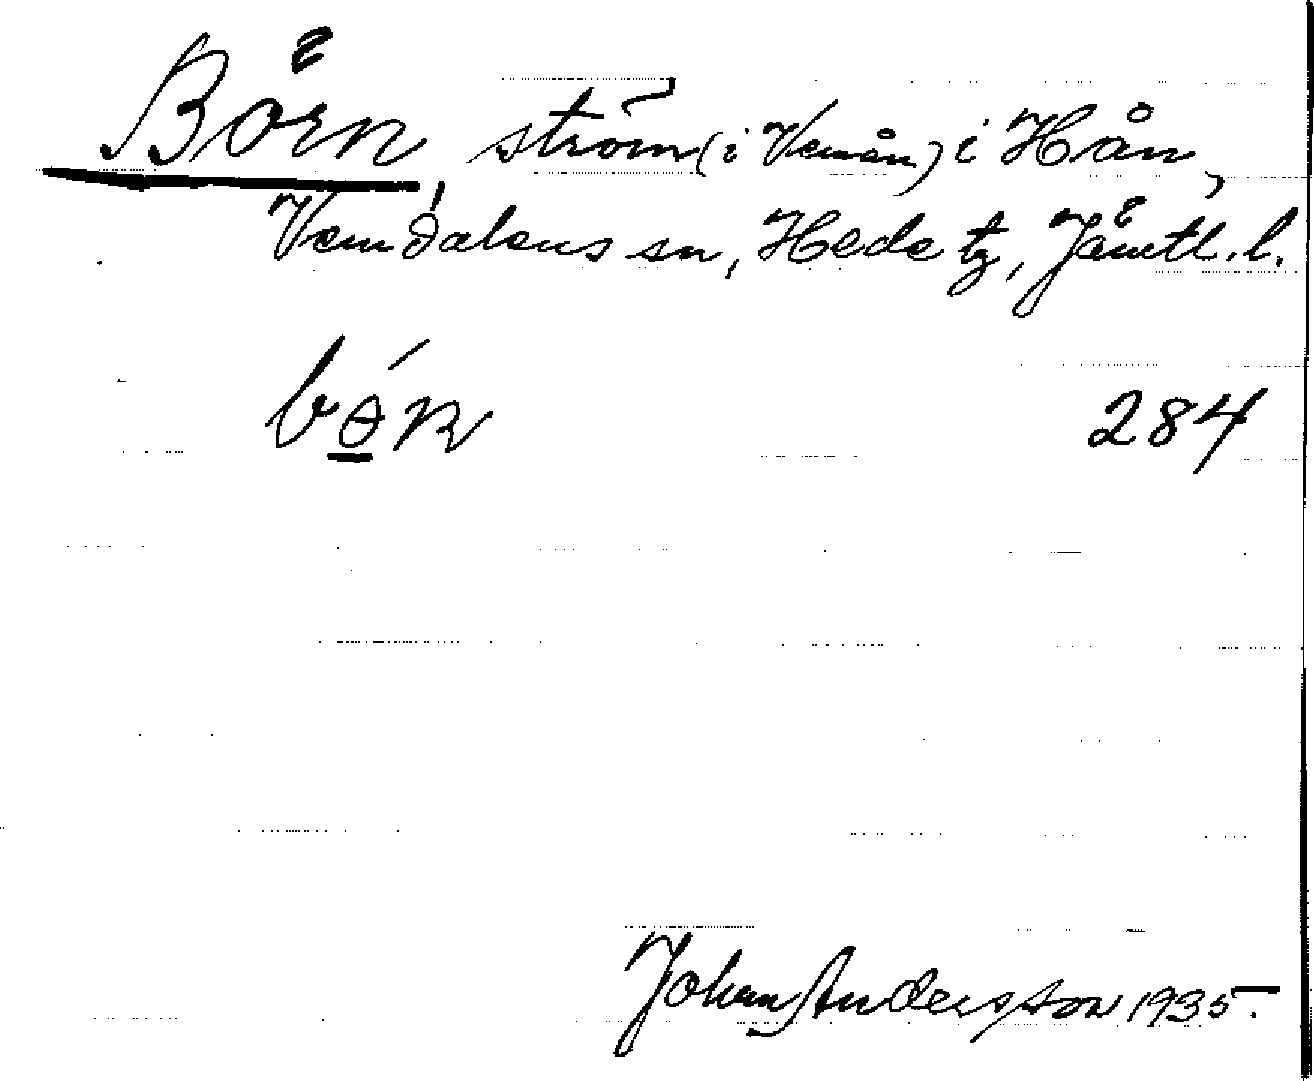 Börn, ström (i Vemån) i Hån,
Vemdalens sn, Hede tg, Jämtl. l.
bǿ̲n 284
Johan Andersson 1935.